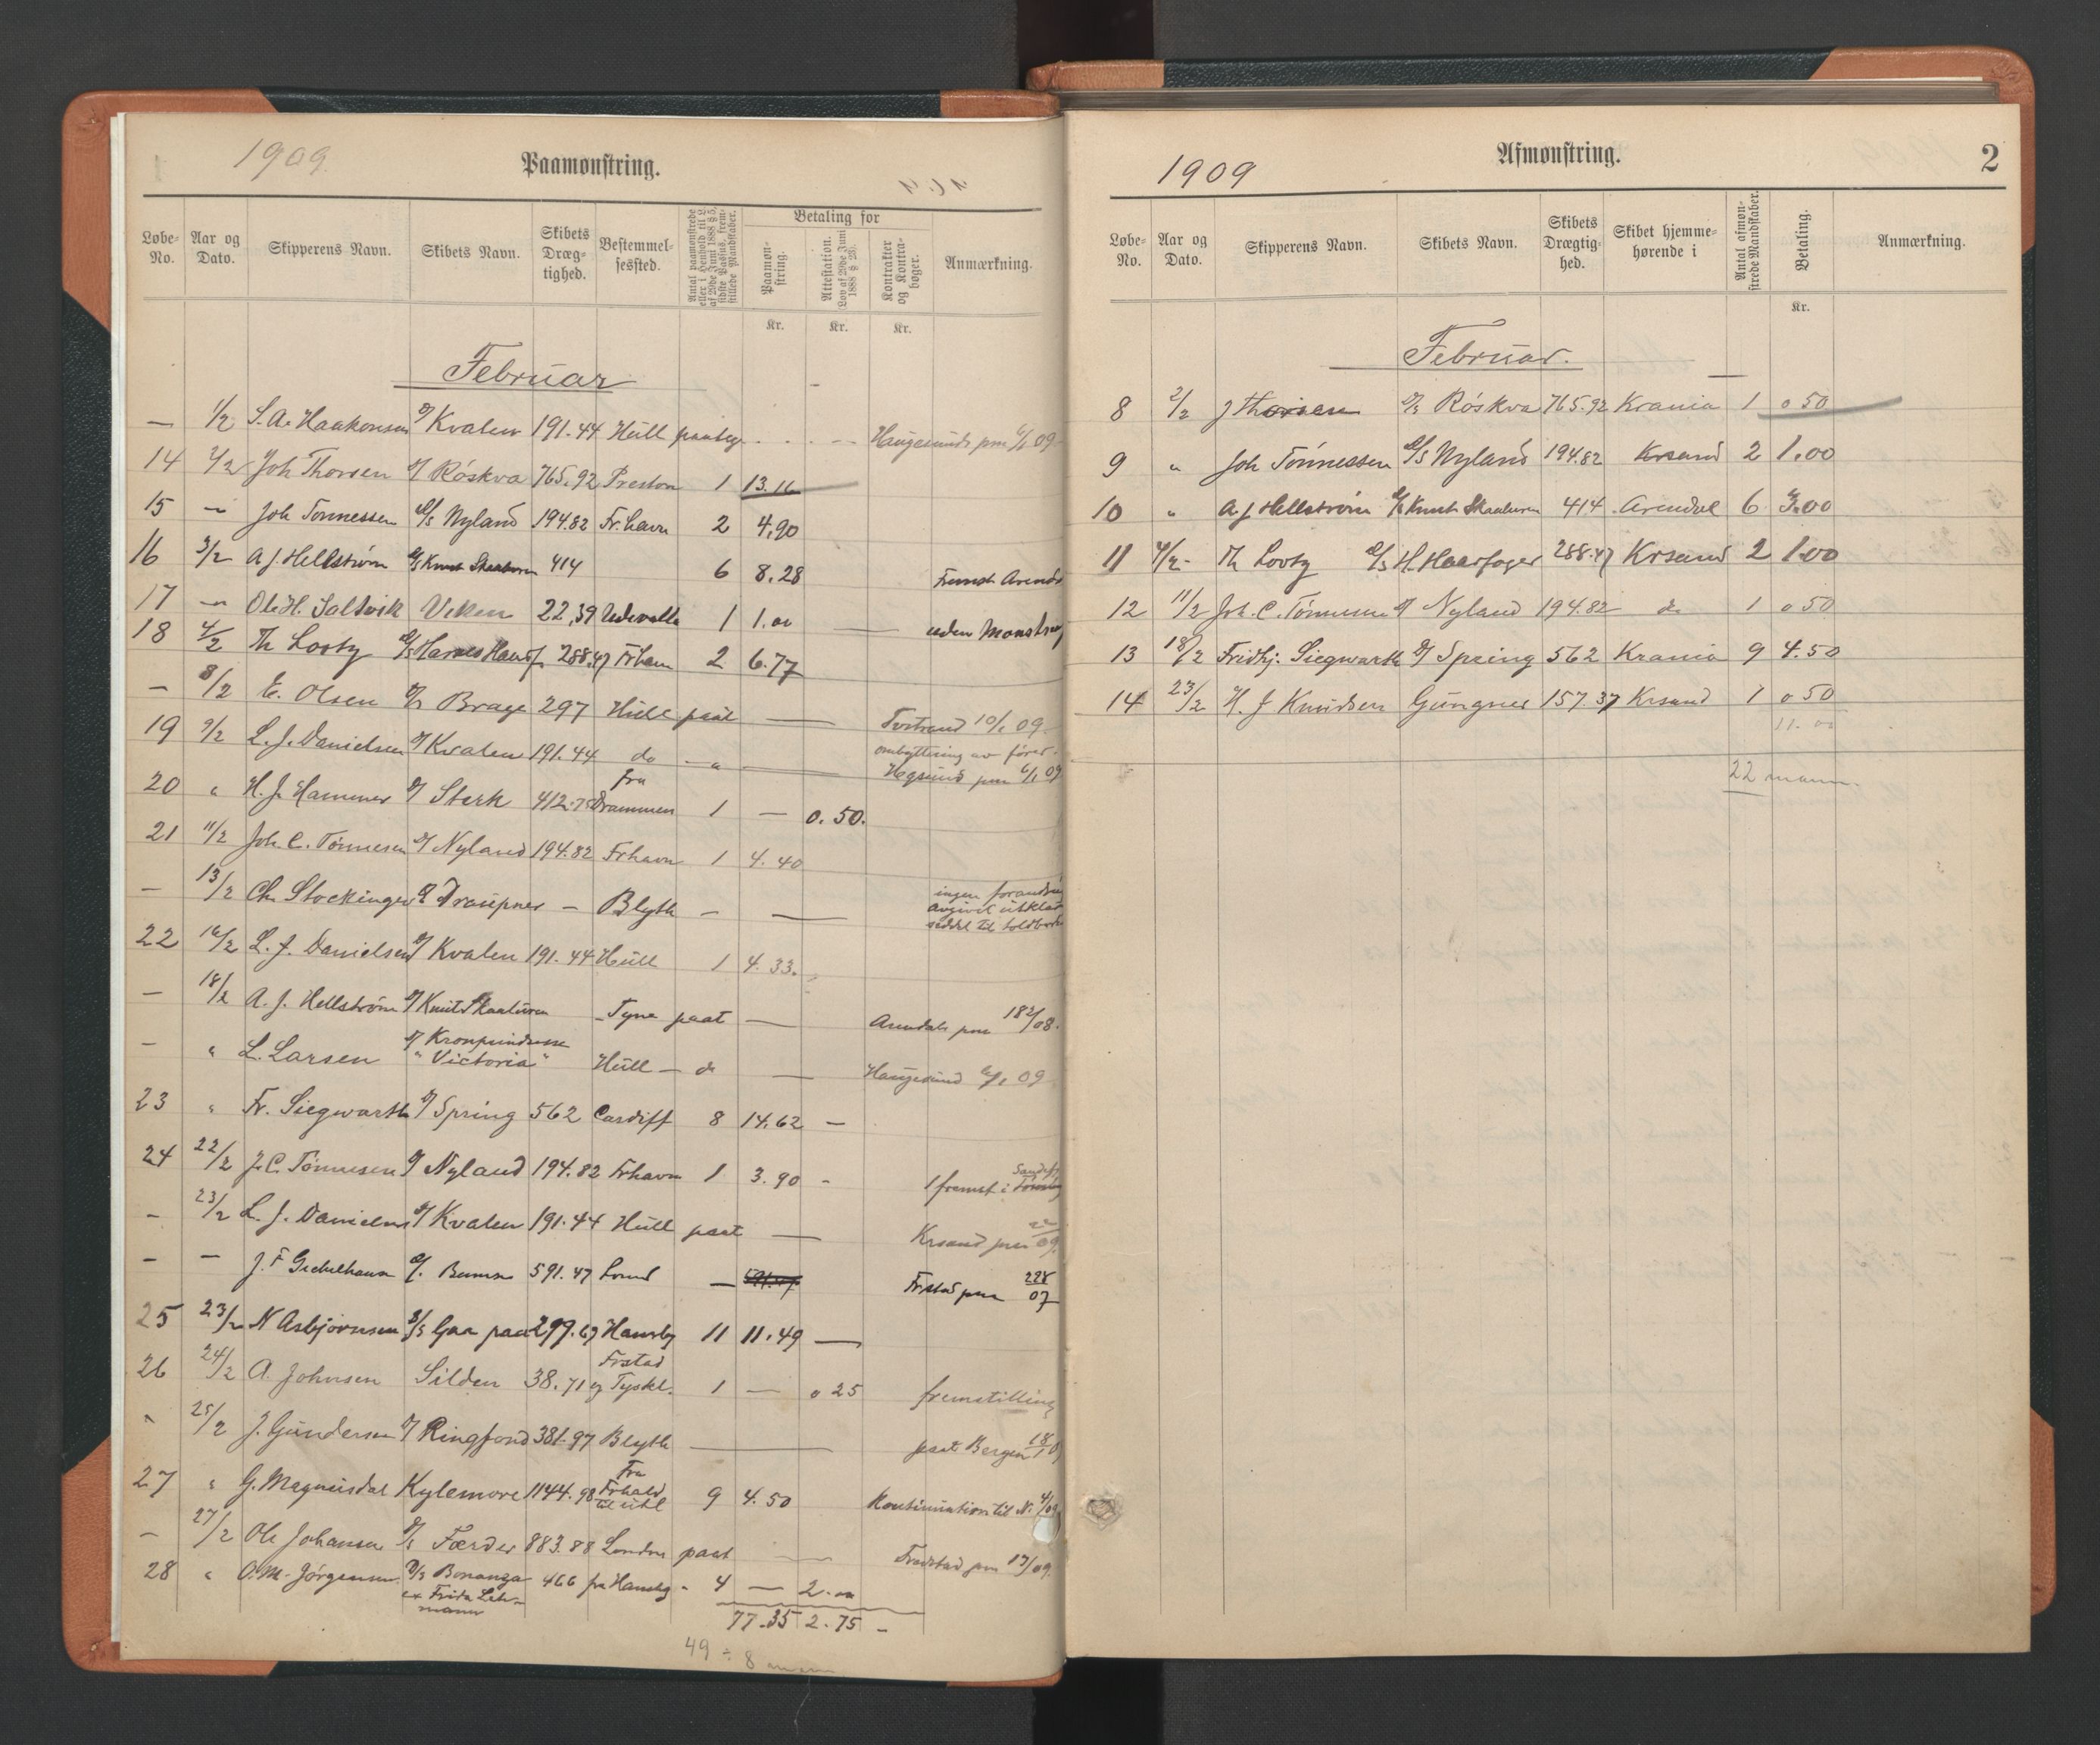 1909
Paamonstring.
Løbe-No. Aar og Dato. Skipperens Navn. Skibets Navn. Skibets Dræg-tighed. Bestemmel-sessted. Antal paamonstrede eller i Henhold til L. af 20de Juni 1888 § 5, sidste Passus, frem-stillede Mandskaber. Betaling for Paamon-string. Attestation. (Lov af 20de Juni 1888 § 25). Kontrakter og Kontra-bøger. Anmærkning.
Kr. Kr. Kr.
Februar
— 1/2 S. A. Haakonsen D/ Kvalen 191.44 Hull Haugesund pm 6/1 09
14 2/2 Joh Thorsen D/ Röskva 765.92 Preston 1 13.16
15 — Joh Tönnessen D/S Nyland 194.82 Fr.havn 2 4,90
16 3/2 A J. Hellström D/S Knut Skaaluren 414 6 8.28 Fremst Arendal
17 — Ole H. Saltvik Viken 22,39 Udevalla 1 1.00 uden Monstring
18 4/2 Th Lootz D/S Harald Haarf. 288.47 Frhavn 2 6.77
— 8/2 E. Olsen D/S Brage 297 Hull paat — Tvestrand 10/1 09
19 9/2 L. J. Danielsen D/ Kvalen 191.44 do — ombyttning av fører. Hgsund pm 6/1 09
20 " H. J. Hammer D/ Sterk 412.75 fra Drammen 1 — 0.50.
21 11/2 Joh. C. Tönnesen D/ Nyland 194.82 Frhavn 1 4.40
— 13/2 Chr Stockinger D Draupner — Blyth — — ingen forandring
avgivet utklar
seddel til toldboden
22 16/2 L. J. Danielsen D/ Kvalen 191.44 Hull 1 4.33.
— 18/2 A. J. Hellström D/ Knut Skaaluren Tyne paat — Arendals pm 18 2/08.
— " L. Larsen D/ Kronprindsesse "Victoria" Hull — do — Haugesund 09
23 " Fr. Siegwarth D/ Spring 562 Cardiff 8 14.62 —
24 22/2 J. C. Tönnesen D/ Nyland 194.82 Frhavn 1 3.90 - 1 fremst i
— 23/2 L. J. Danielsen D/ Kvalen 191.44 Hull paat — Krsand pm 09
— — J. F. D/. 591.47 — Frstad pm 228/07
25 23/2 N Asbjörnsen S/S Gaa paa 299.69 Hambg 11 11.49 —
26 24/2 A. Johnsen Silden 38.71 Frstad og Tyskl. 1 — 0 25 fremstilling
" 25/2 J. Gundersen D/ Ringfond 381.97 Blyth — paat Bergen 18/1 09
27 " G. Magnusdal Kylemore 1144.98 Fra Frhald til utl 9 4.50 Kontinuation til N. 4/09
— 27/2 Ole Johansen D/S Færder 883.88 London paat — Fredstad pm 17/09.
28 " O. M. Jörgensen. D/S Bonanza ex Frida Leh-mann 466 fra Hambg - 4 — 2.00
77.35 2.75 —
49 ÷ 8 mann
1909
Afmonstring.
2
Løbe-No. Aar og Dato. Skipperens Navn. Skibets Navn. Skibets Drægtig-hed. Skibet hjemme-hørende i Antal afmon-strede Mandskaber. Betaling. Anmærkning.
Kr.
Februar.
8 2/2 J Thorsen D/S Röskva 765.92 Krania 1 0 50
9 " Joh Tönnessen D/S Nyland 194.82 Krsand 2 1.00
10 " A. J Hellström D/S Knut Skaaluren 414 Arendal 6 3.00
11 4/2 - Th Lootz D/S H. Haarfager 288.47 Krsand 2 1.00
12 11/2 Joh. C. Tönnesen D/ Nyland 194.82 do 1 0 50
13 18/2 Fridtj. Siegwarth D/ Spring 562 Krania 9 4.50
14 23/2 H. J Knudsen Gungner 157.37 Krsand 1 0 50
11.00
22 mann.